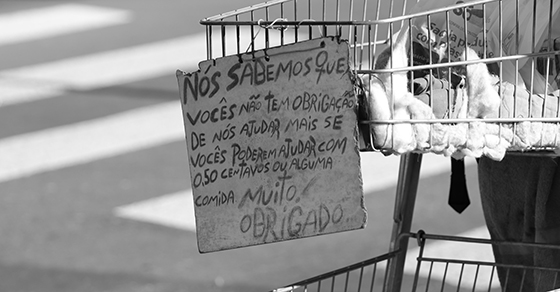 NÓS SABEMOS QUE
VOCÊS NÃO TEM OBRIGAÇÃO
DE NÓS AJUDAR MAIS SE
VOCÊS PODEREM AJUDAR COM
0,50 CENTAVOS OU ALGUMA
COMIDA MUITO
OBRIGADO...